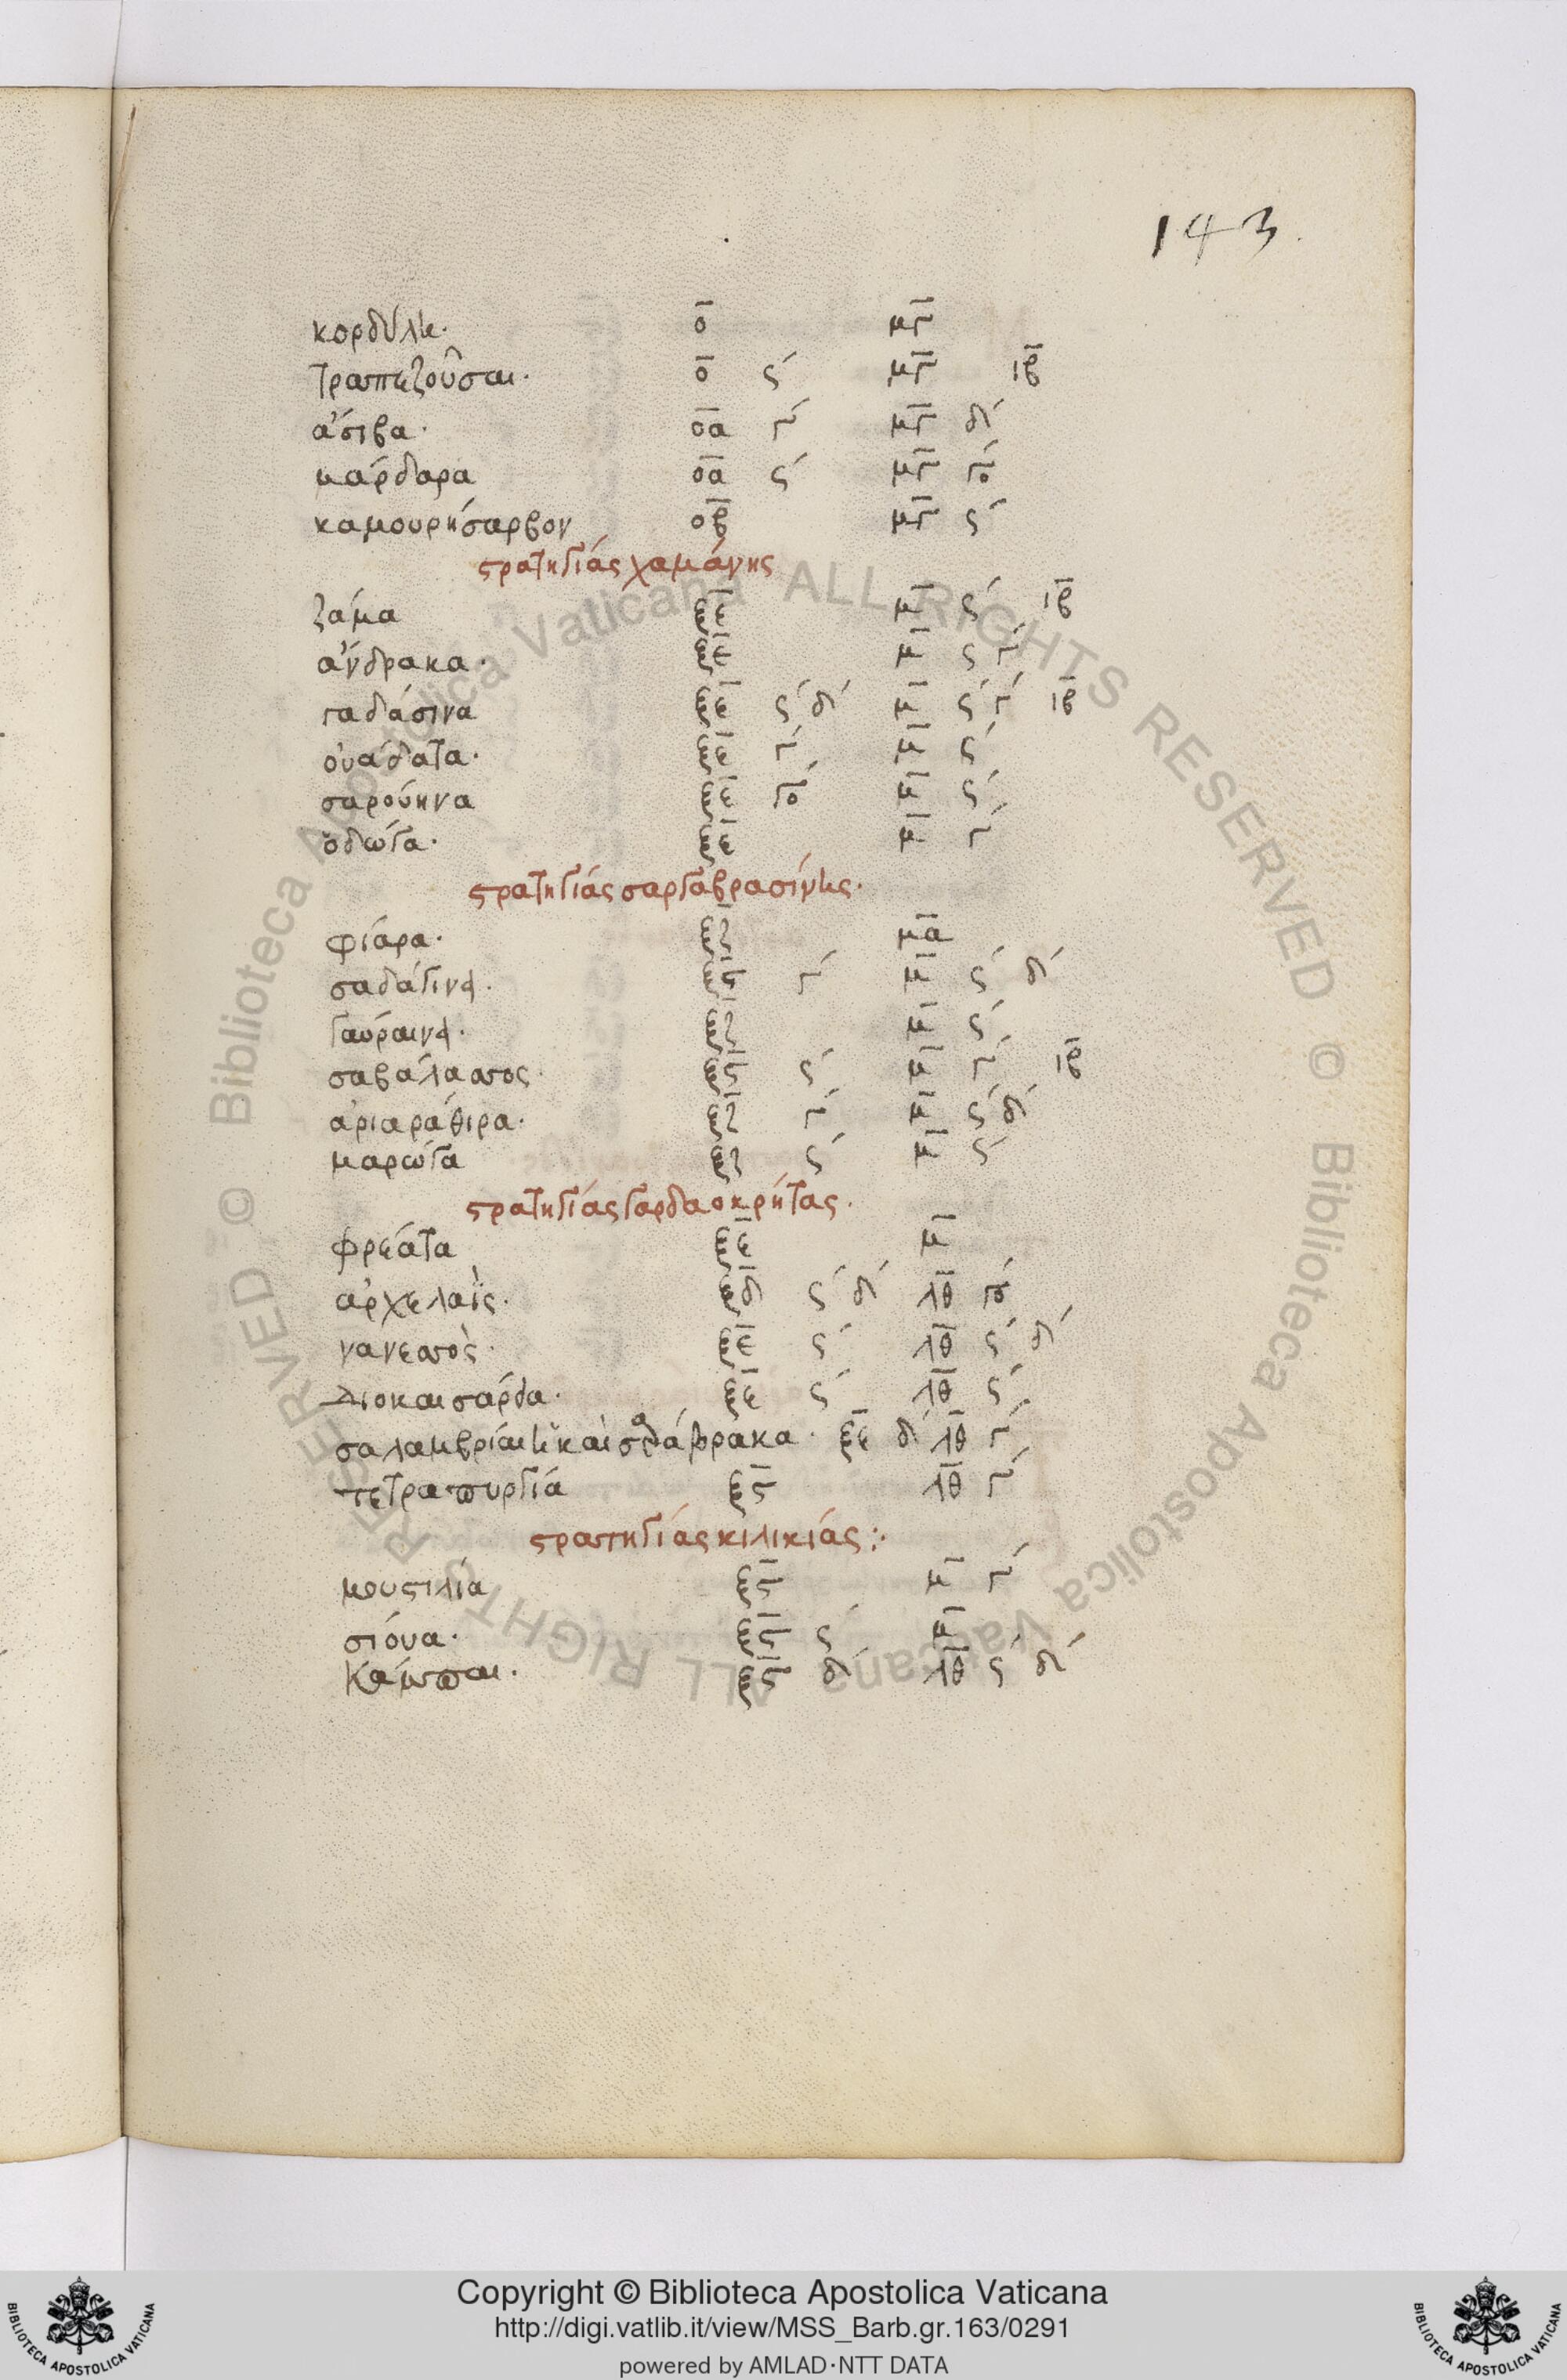 143.
κορδύλη· ο̅ μγ̅
τραπεζοῦσαι· ο̅ ς´ μγ̅ ιβ̅
ἄσιβα· οα̅ γ´ μγ̅ δ´
μάρδαρα οα̅ ς´ μγ̅ γο´
καμουρήσαρβον οβ̅ μγ̅ ς´
στρατηγίας χαμάνης
ζάμα ξε̅ μ̅ ς´ ιβ̅
ἄνδρακα· ξε̅ μ̅ ς γ´
γαδάσινα ξε̅ ς´ δ´ μ̅ ς´ γ´ ιβ̅
ὀυάδατα· ξε̅ γ´ μ̅ ς´
σαρούηνα ξε̅ γο´ μ̅ ς´
ὀδώγα· ξε̅ μ̅ γ´
στρατηγίας σαργαβρασίνης·
φιάρα· ξζ̅ μα̅
σαδάγινα· ξς̅ γ´ μ̅ ς´ δ´
γαύραινα· ξζ̅ μ̅ ς´
σαβάλασσος· ξς̅ ς´ μ̅ γ´ ιβ̅
ἀριαράθιρα· ξζ̅ γ´ μ̅ ς´ δ´
μαρώγα ξζ̅ ς´ μ̅ ς´
στρατηγίας γαρδαοκρήτας·
φρέατα ξε̅ μ̅
ἀρχελαΐς· ξδ̅ ς´ δ´ λθ̅ γο´
νανεσσὸς· ξε̅ ς´ λθ̅ ς´ δ´
Διοκαισάρδα· ξε̅ ς´ λθ̅ ς´
ξε̅ δ´ λθ̅ γ´
τετραπυργία ξς̅ λθ̅ γ´
στρατηγίας κιλικίας:·
μουστιλία ξς̅ μ̅ γ´
σιόυα· ξς̅ ς´ μ̅
Κάμπαι· ξς̅ δ´ λθ̅ ς´ δ´
Biblioteca Apostolica Vaticana ALL RIGHTS RESERVED © Biblioteca Apostolica Vaticana ALL RIGHTS RESERVED ©
Copyright © Biblioteca Apostolica Vaticana
http://digi.vatlib.it/view/MSS_Barb.gr.163/0291
powered by AMLAD·NTT DATA
BIBLIOTECA APOSTOLICA VATICANA
BIBLIOTECA APOSTOLICA VATICANA